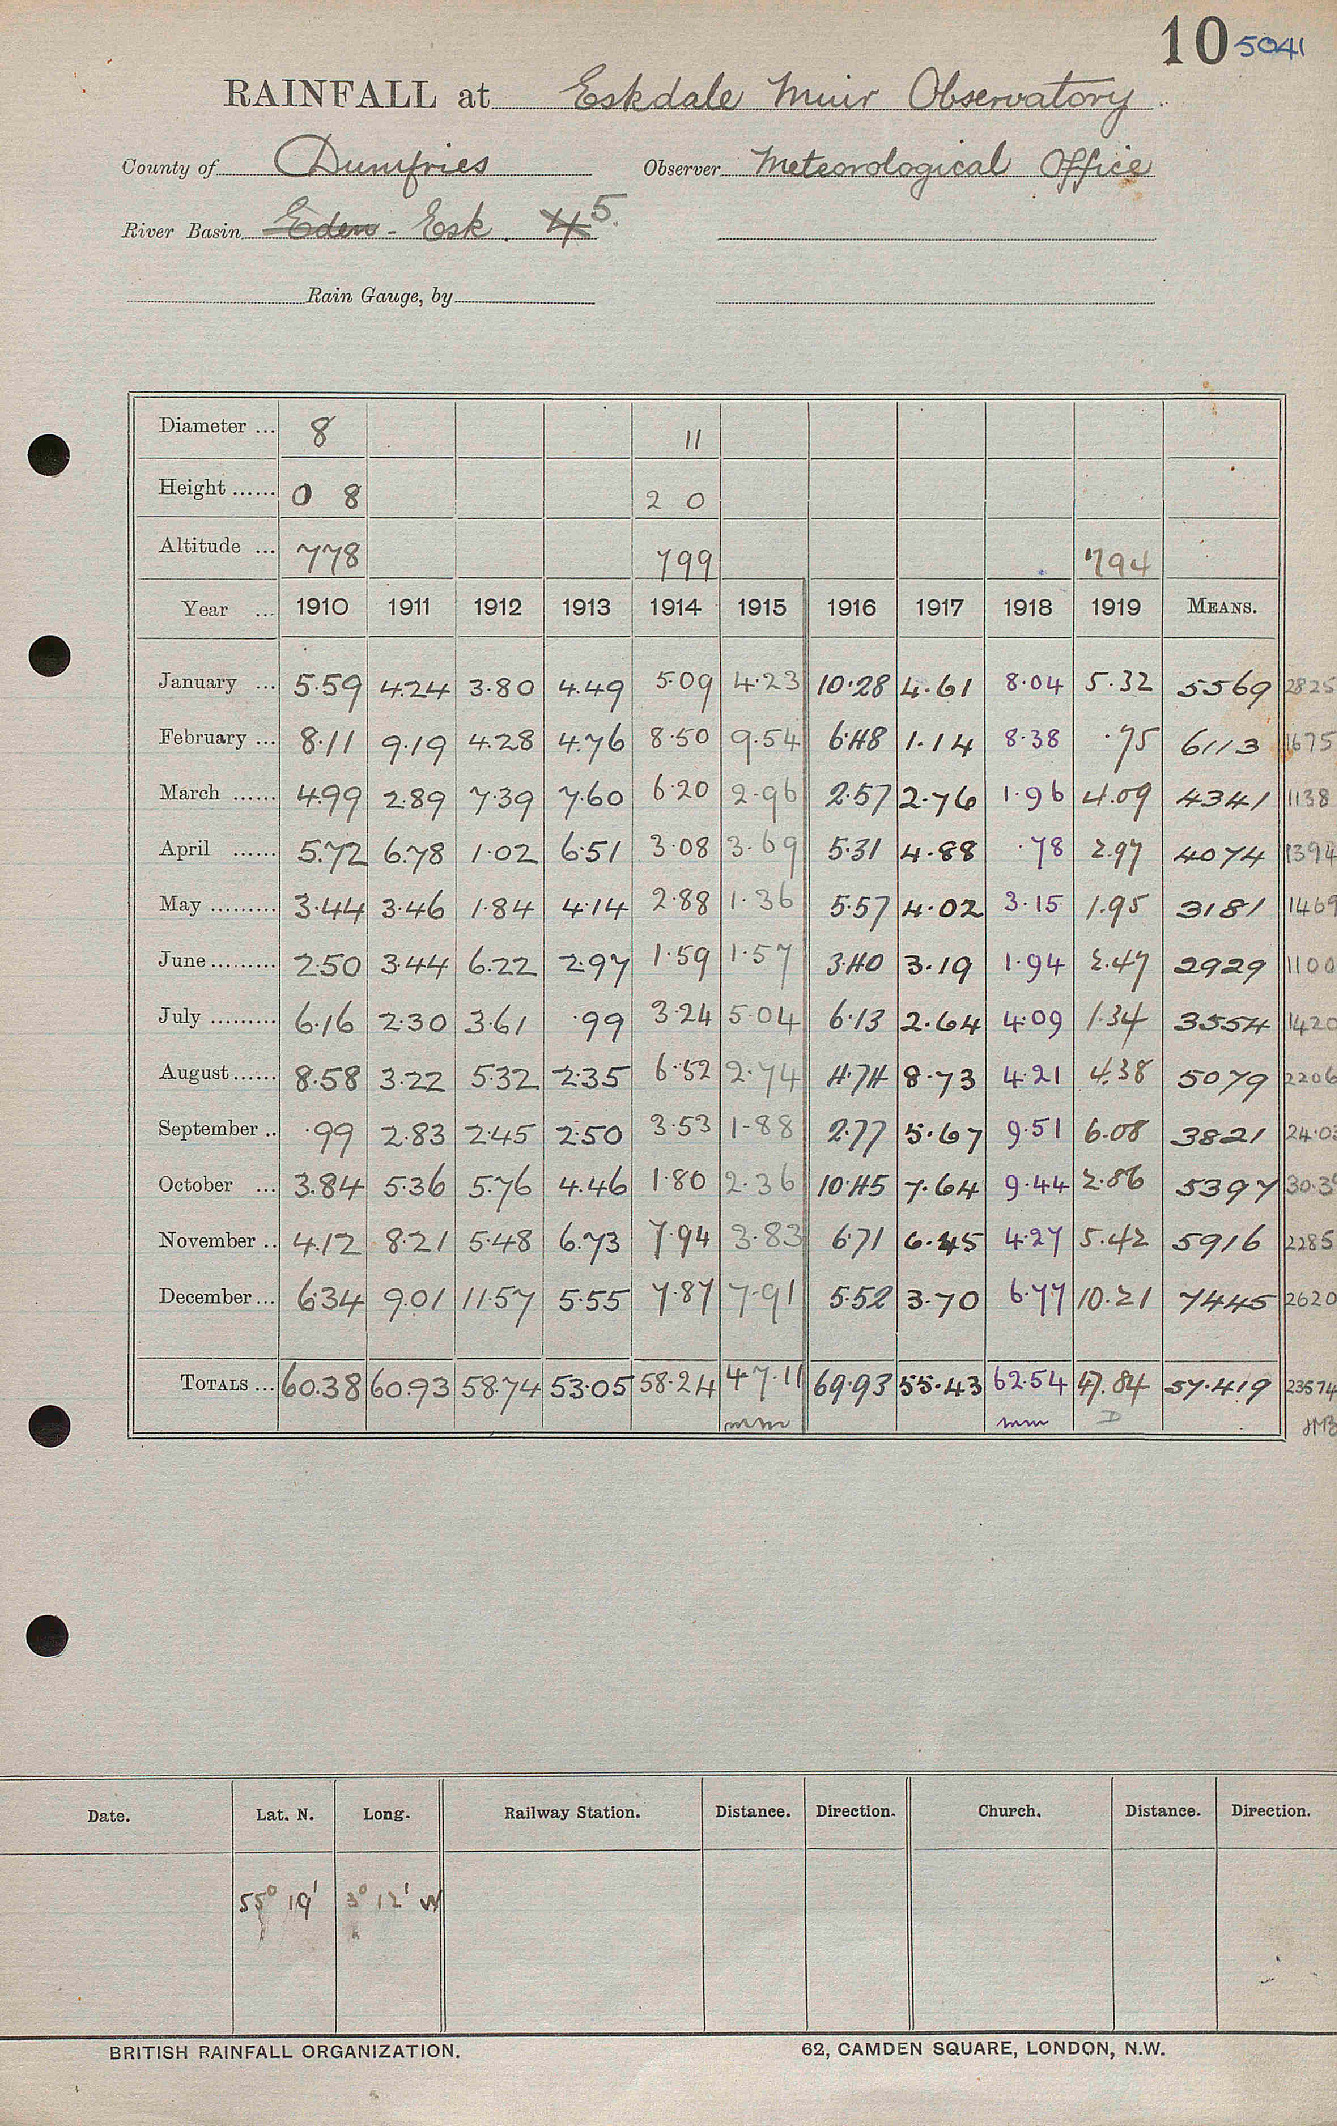 10 5041
RAINFALL at Eskdale Muir Observatory
County of Dumfries Observer Meteorological Office
River Basin Eden - Esk. 4 5.
Rain Gauge, by
Diameter ... 8 11
Height ...... 0 8 2 0
Altitude ... 778 799 794
Year ... 1910 1911 1912 1913 1914 1915 1916 1917 1918 1919 MEANS.
January ... 5.59 4.24 3.80 4.49 5.09 4.23 10.28 4.61 8.04 5.32 5569 2825
February ... 8.11 9.19 4.28 4.76 8.50 9.54 6.48 1.14 8.38 .75 6113 1675
March ...... 4.99 2.89 7.39 7.60 6.20 2.96 2.57 2.76 1.96 4.09 4341 1138
April ...... 5.72 6.78 1.02 6.51 3.08 3.69 5.31 4.88 .78 2.97 4074 1394
May ......... 3.44 3.46 1.84 4.14 2.88 1.36 5.57 4.02 3.15 1.95 3181 1469
June ......... 2.50 3.44 6.22 2.97 1.59 1.57 3.40 3.19 1.94 2.47 2929 1100
July ......... 6.16 2.30 3.61 .99 3.24 5.04 6.13 2.64 4.09 1.34 3554 1420
August ...... 8.58 3.22 5.32 2.35 6.52 2.74 4.74 8.73 4.21 4.38 5079 2206
September .. .99 2.83 2.45 2.50 3.53 1.88 2.77 5.67 9.51 6.08 3821 24.03
October ... 3.84 5.36 5.76 4.46 1.80 2.36 10.45 7.64 9.44 2.86 5397 30.3
November .. 4.12 8.21 5.48 6.73 7.94 3.83 6.71 6.45 4.27 5.42 5916 2285
December ... 6.34 9.01 11.57 5.55 7.87 7.91 5.52 3.70 6.77 10.21 7445 2620
TOTALS ... 60.38 60.93 58.74 53.05 58.24 47.11 69.93 55.43 62.54 47.84 57.419 23574
mm mm D
Date. Lat. N. Long. Railway Station. Distance. Direction. Church. Distance. Direction.
55° 19' 3° 12' W
BRITISH RAINFALL ORGANIZATION. 62, CAMDEN SQUARE, LONDON, N.W.